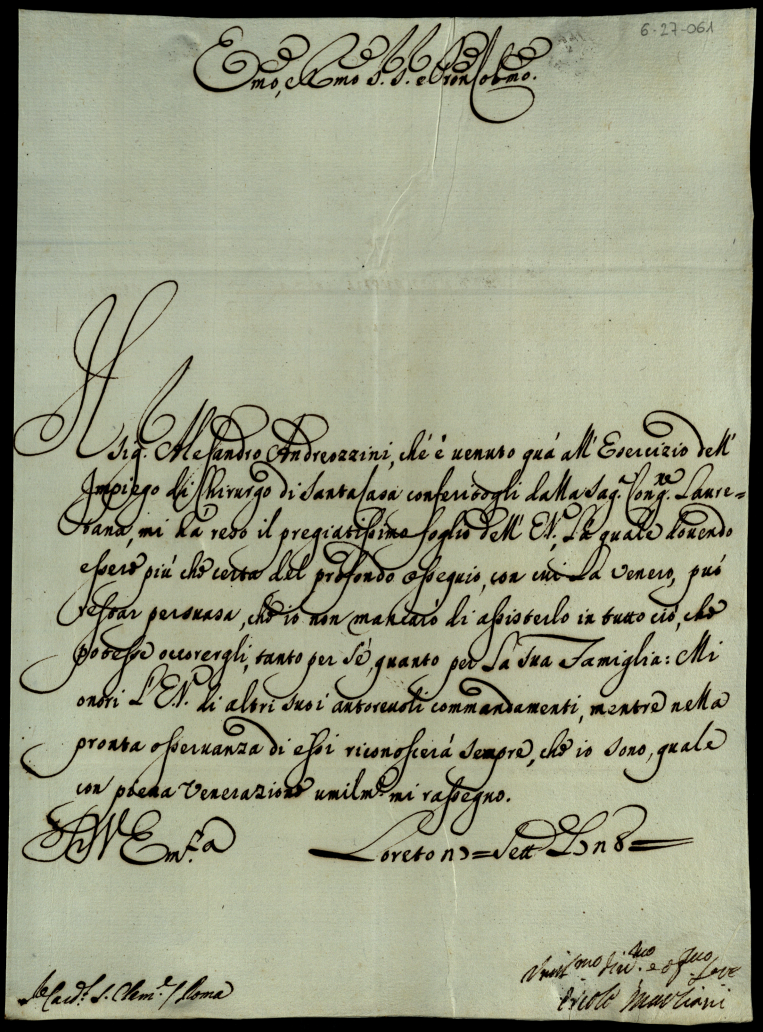 6-27-061
Emo, e Rmo S. S. e Pron Colmo.
Il
Sig. Alesandro Andreozzini, che è uenuto quà all' Esercizio dell'
Impiego di Chirurgo di Santa Casa conferitogli dalla Sag.ᵃ Cong.ⁿᵉ Laure=
tana, mi hà reso il pregiatissimo foglio dell' E.V., La quale douendo
essere più che certa del profondo ossequio, con cui La venero, può
restar persuasa, che io non mancarò di assisterlo in tutto ciò, che
potesse occorergli, tanto per Sè, quanto per La sua Famiglia: Mi
onori L'E.V. di altri suoi autoreuoli commandamenti, mentre nella
pronta osseruanza di essi riconoscerà sempre, che io sono, quale
con piena Venerazione umilm.ᵉ mi rassegno.
Di V. Em.ᶻᵃ
Loreto
Sett.
Card.ˡ S. Clem.ᵉ / Roma
Umil.ᵐᵒ